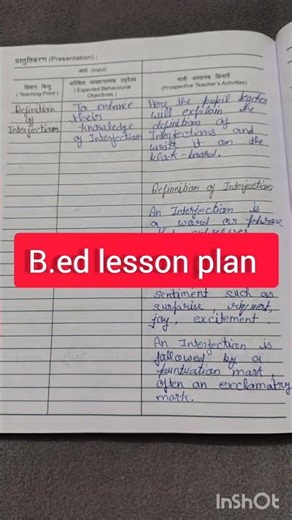 प्रस्तुतिकरण (Presentation) :
अदा (Input)
शिक्षण बिन्दु
( Teaching Point )
अपेक्षित व्यवहारगत उद्देश्य
( Expected Behavioural
Objectives )
भावी अध्यापक क्रियाएँ
(Prospective Teacher's Activities)
Definition
of
Interjection
To enhance
their
knowledge
of Interjection
Here the pupil teacher
will explain the
definition of
Interjections and
write it on the
black-board.
Definition of Interjection
An Interjection is
a word or phrase
B.ed lesson plan
sentiment such as
surprise,
joy, excitement.
An Interjection is
followed by a
puntuation mark,
often an exclamatry
mark.
InShOt